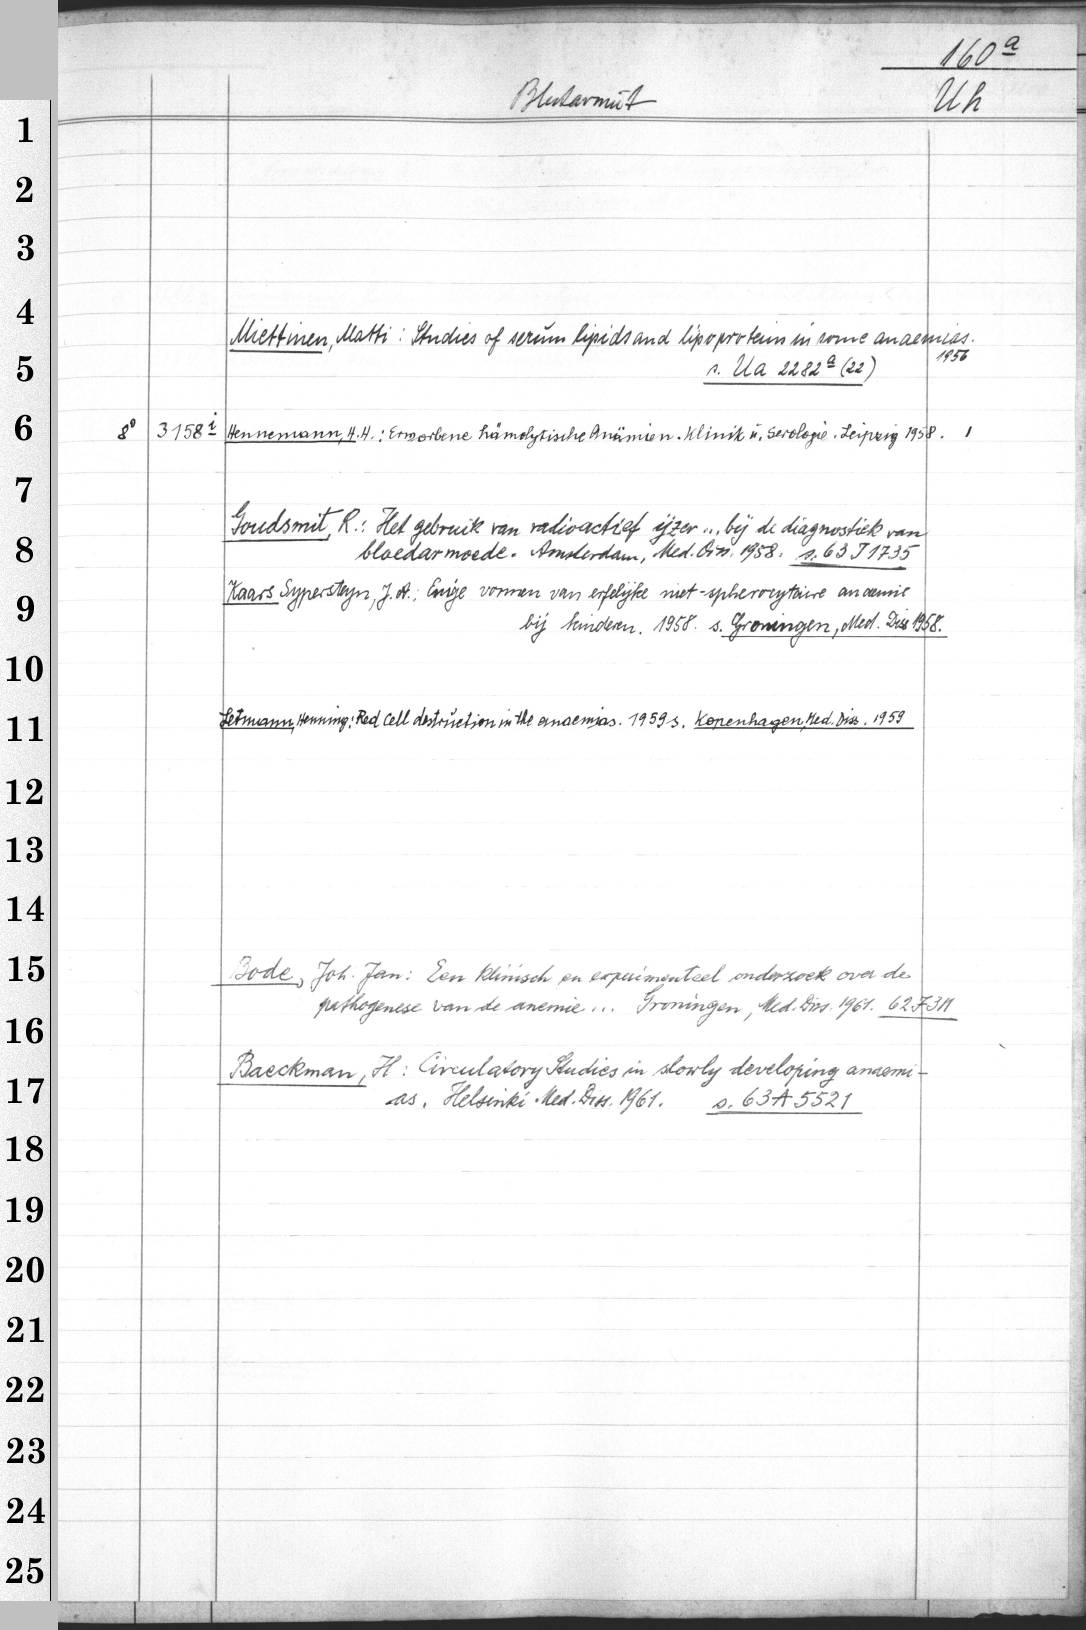 160a
Blutarmut
Uh
1
2
3
4
Miettinen, Matti: Studies of serum lipids and lipoprotein in some anaemias.
1956
5
s. Ua 2282a (22)
6
8° 3158i Hennemann, H.H.: Erworbene hämolytische Anämien. Klinik u. Serologie. Leipzig 1958. 1
7
Goudsmit, R.: Het gebruik van radioactief ijzer... bij de diagnostiek van
8
bloedarmoede. Amsterdam, Med. Diss. 1958. s. 63 J 1735
Kaars Sypersteyn, J.A.: Enige vormen van erfelijke niet-spherocytaire anaemie
9
bij kinderen. 1958. s. Groningen, Med. Diss 1958.
10
Henning: Red cell destruction in the anaemias. 1959 s. Kopenhagen, Med. Diss. 1959
11
12
13
14
Bode, Joh. Jan: Een klinisch en experimenteel onderzoek over de
15
pathogenese van de anemie... Groningen, Med. Diss. 1961.
16
Baeckman, H: Circulatory Studies in slowly developing anaemi-
17
as. Helsinki. Med. Diss. 1961. s. 63 A 5521
18
19
20
21
22
23
24
25